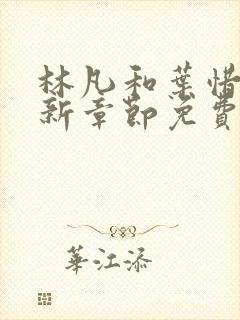 林凡和葉惜
新章節免費
華江添